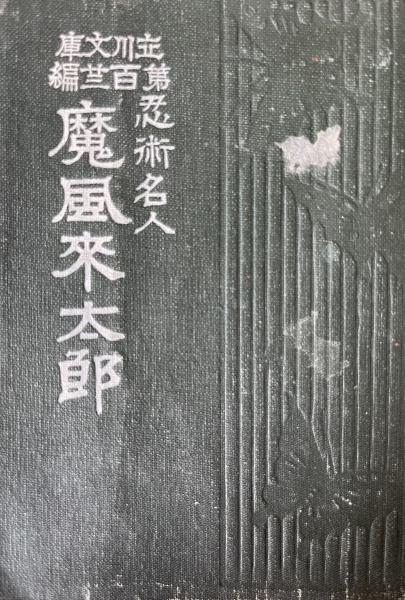 立川文庫
第百廿二編
忍術名人
魔風來太郎